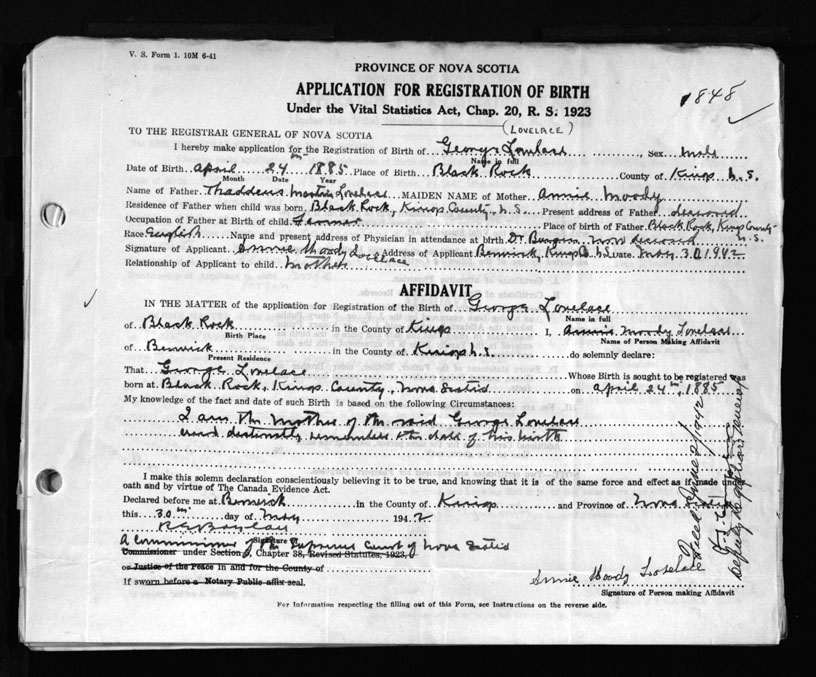 V. S. Form 1. 10M 6-41
PROVINCE OF NOVA SCOTIA
APPLICATION FOR REGISTRATION OF BIRTH
1848
Under the Vital Statistics Act, Chap. 20, R. S. 1923
(LOVELACE)
TO THE REGISTRAR GENERAL OF NOVA SCOTIA
I hereby make application for the Registration of Birth of George Lovelace, Sex male
Name in full
Date of Birth April 24th 1885 Place of Birth Black Rock County of Kings N.S.
Month Date Year
Name of Father Thaddeus Martin Lovelace MAIDEN NAME of Mother Annie Moody
Residence of Father when child was born Black Rock, Kings County, N.S. Present address of Father deceased
Occupation of Father at Birth of child Farmer Place of birth of Father Black Rock, Kings County N.S.
Race English Name and present address of Physician in attendance at birth Dr. now deceased
Signature of Applicant Annie Moody Lovelace Address of Applicant Berwick, Kings Co. N.S. Date May 30 1942
Relationship of Applicant to child Mother
AFFIDAVIT
IN THE MATTER of the application for Registration of the Birth of George Lovelace
Name in full
of Black Rock in the County of Kings I, Annie Moody Lovelace
Birth Place Name of Person Making Affidavit
of Berwick in the County of Kings N.S. do solemnly declare:
Present Residence
That George Lovelace Whose Birth is sought to be registered was
born at Black Rock, Kings County, Nova Scotia on April 24th, 1885
My knowledge of the fact and date of such Birth is based on the following Circumstances:
I am the mother of the said George Lovelace
and distinctly remember the date of his birth
I make this solemn declaration conscientiously believing it to be true, and knowing that it is of the same force and effect as if made under
oath and by virtue of The Canada Evidence Act.
Declared before me at Berwick in the County of Kings and Province of Nova Scotia
this 30th day of May 1942
Signature
A Commissioner of the Supreme Court of Nova Scotia
Commissioner under Section , Chapter 38, Revised Statutes, 1923,
or Justice of the Peace in and for the County of
If sworn before a Notary Public affix seal.
Annie Moody Lovelace
Signature of Person making Affidavit
For Information respecting the filling out of this Form, see Instructions on the reverse side.
Deputy Registrar General